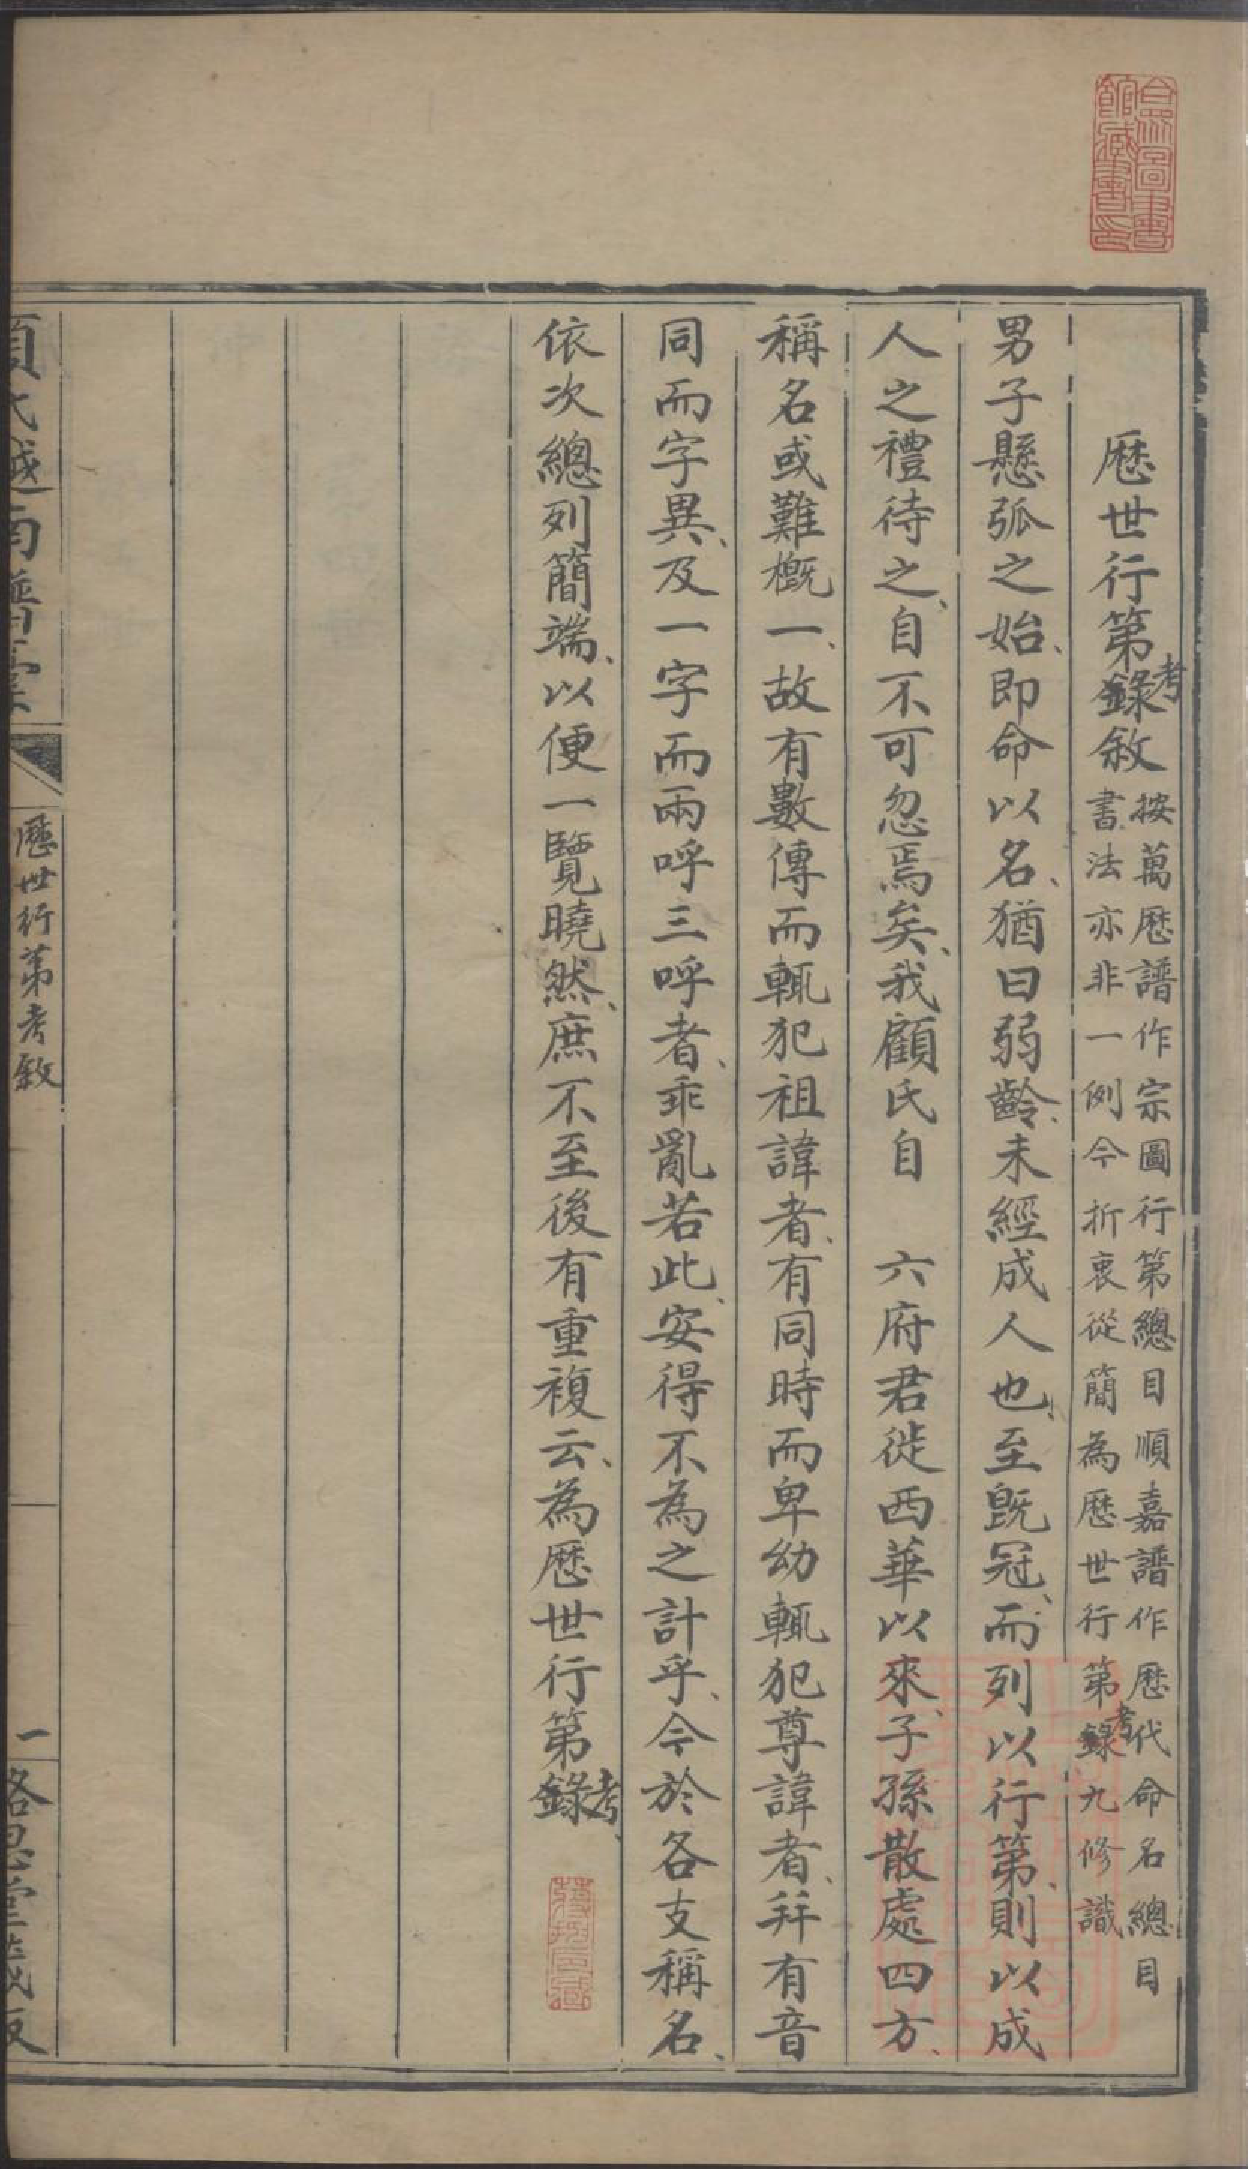 合眾圖書
館藏書印
歷世行第錄考敘
按萬歷譜作宗圖行第總目順嘉譜作歷代命名總目
書法亦非一例今折衷從簡為歷世行第錄考九修識
男子懸弧之始、即命以名、猶曰弱齡、未經成人也、至既冠、而列以行第、則以成
人之禮待之、自不可忽焉矣、我顧氏自　六府君徙西華以來、子孫散處四方、
稱名或難概一、故有數傳而輒犯祖諱者、有同時而卑幼輒犯尊諱者、并有音
同而字異、及一字而兩呼三呼者、乖亂若此、安得不為之計乎、今於各支稱名、
依次總列簡端、以便一覽曉然、庶不至後有重複云、為歷世行第錄考、
歷世行第考敘
一